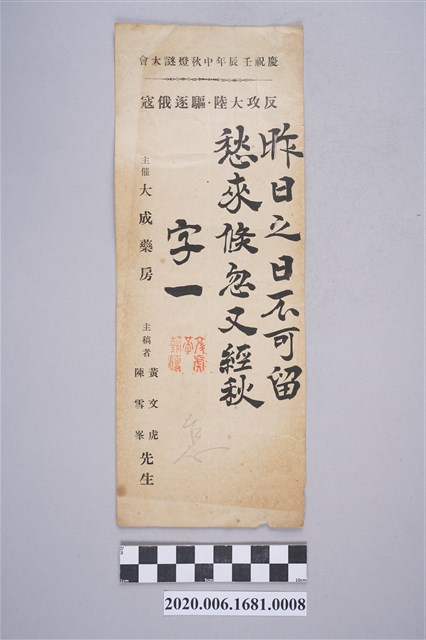 慶祝壬辰年中秋燈謎大會
反攻大陸·驅逐俄寇
昨日之日不可留
愁來倏忽又經秋
字一
主催 大成藥房
主稿者 黃文虎 陳雪峯 先生
怎
cm 5cm 10cm
2020.006.1681.0008